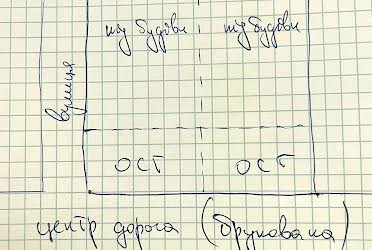 під будівн
під будівн
вулиця
ОСГ
ОСГ
центр дорога (брукована)